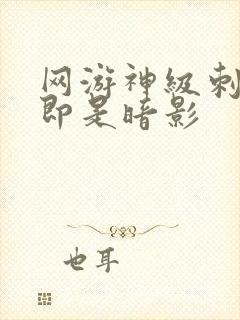 网游神级刺
即是暗影
也耳